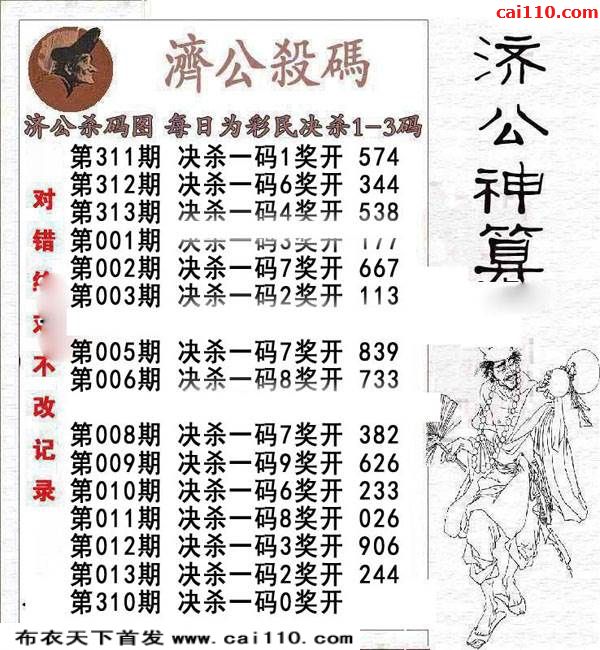 cai110.com
濟公殺碼
济公杀码图 每日为彩民决杀1-3码
第311期 决杀一码1奖开 574
第312期 决杀一码6奖开 344
第313期 决杀一码4奖开 538
第001期 决杀一码3奖开 177
第002期 决杀一码7奖开 667
第003期 决杀一码2奖开 113
第005期 决杀一码7奖开 839
第006期 决杀一码8奖开 733
第008期 决杀一码7奖开 382
第009期 决杀一码9奖开 626
第010期 决杀一码6奖开 233
第011期 决杀一码8奖开 026
第012期 决杀一码3奖开 906
第013期 决杀一码2奖开 244
第310期 决杀一码0奖开
对错不改记录
济公神算
布衣天下首发 www.cai110.com